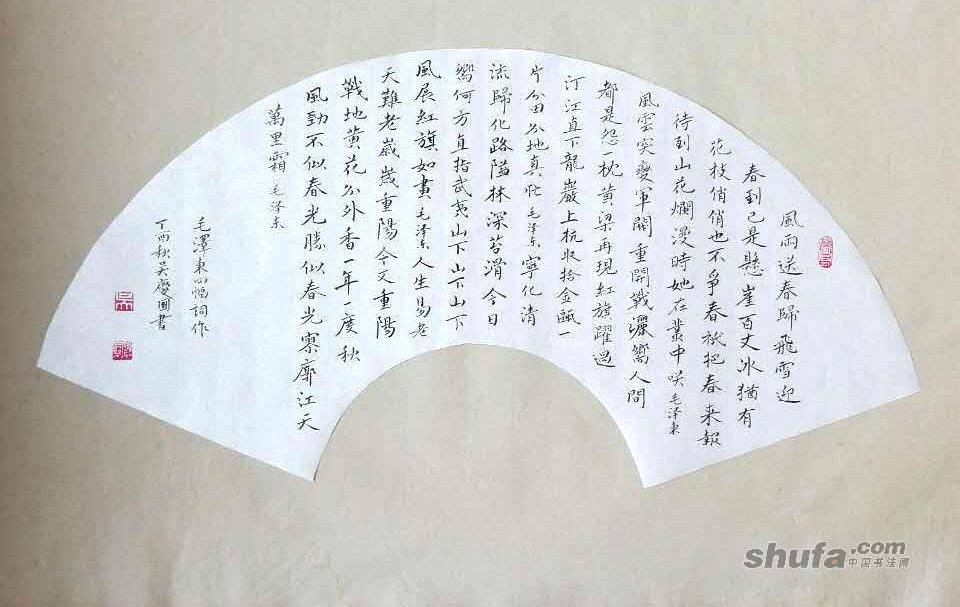 風雨送春歸飛雪迎
春到已是懸崖百丈冰猶有
花枝俏俏也不爭春祇把春来報
待到山花爛漫時她在叢中咲毛泽東
風雲突變軍閥重開戰灑鄉人間
都是怨枕黄梁再現紅旗躍過
汀江直下龍巖上杭收拾金甌一
片分田分地真忙毛泽东寧化清
流歸化路隘林深苔滑今日
嚮何方直指武夷山下山下山下
風展紅旗如畫毛泽东人生易老
天難老歲歲重陽今又重陽
戰地黄花分外香一年一度秋
風勁不似春光勝似春光寥廓江天
萬里霜毛泽东
毛澤東四幅詞作
丁酉秋吴慶國書
shufa.com
中国书法网